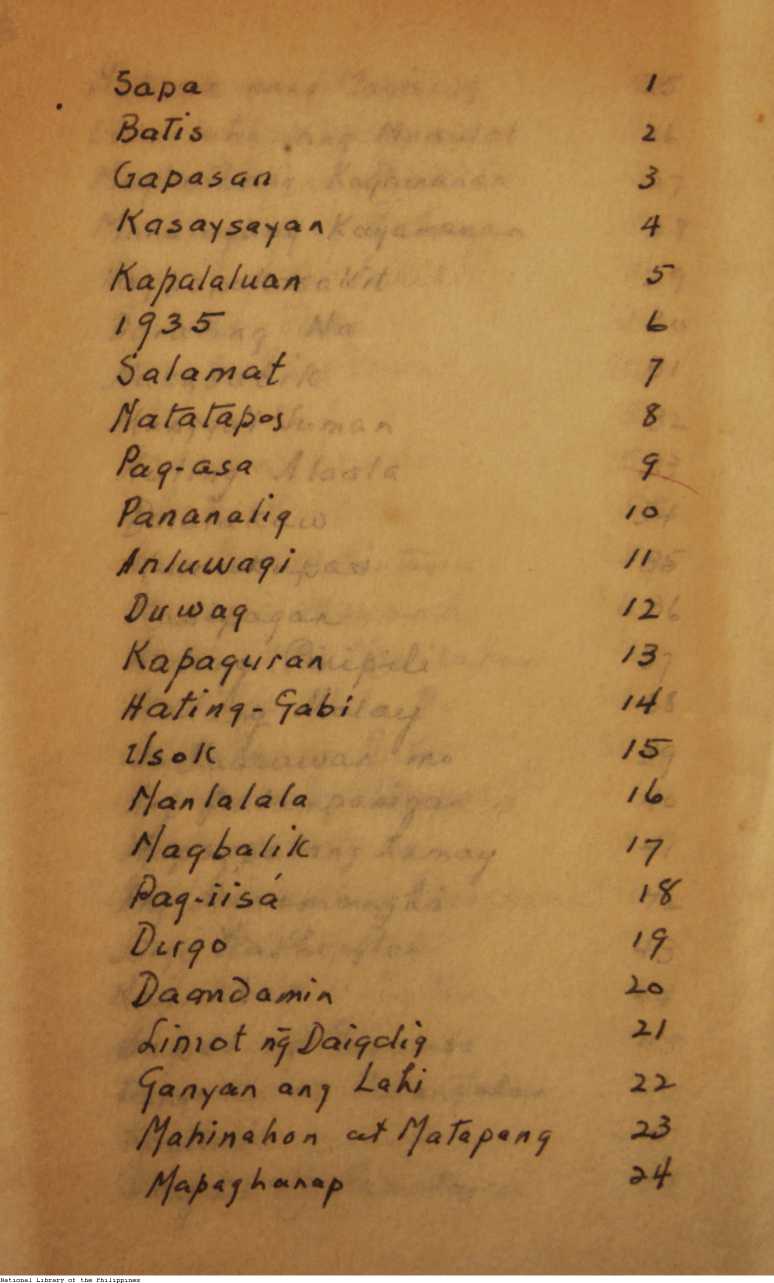 Sapa 1
Batis 2
Gapasan 3
Kasaysayan 4
Kapalaluan 5
1935 6
Salamat 7
Natatapos 8
Pag-asa 9
Pananalig 10
Anluwagi 11
Duwag 12
Kapaguran 13
Hating-Gabi 14
Usok 15
Manlalala 16
Nagbalik 17
Pag-iisá 18
Dugo 19
Damdamin 20
Limot ng̃ Daigdig 21
Ganyan ang Lahi 22
Mahinahon at Matapang 23
Mapaghanap 24
National Library of the Philippines